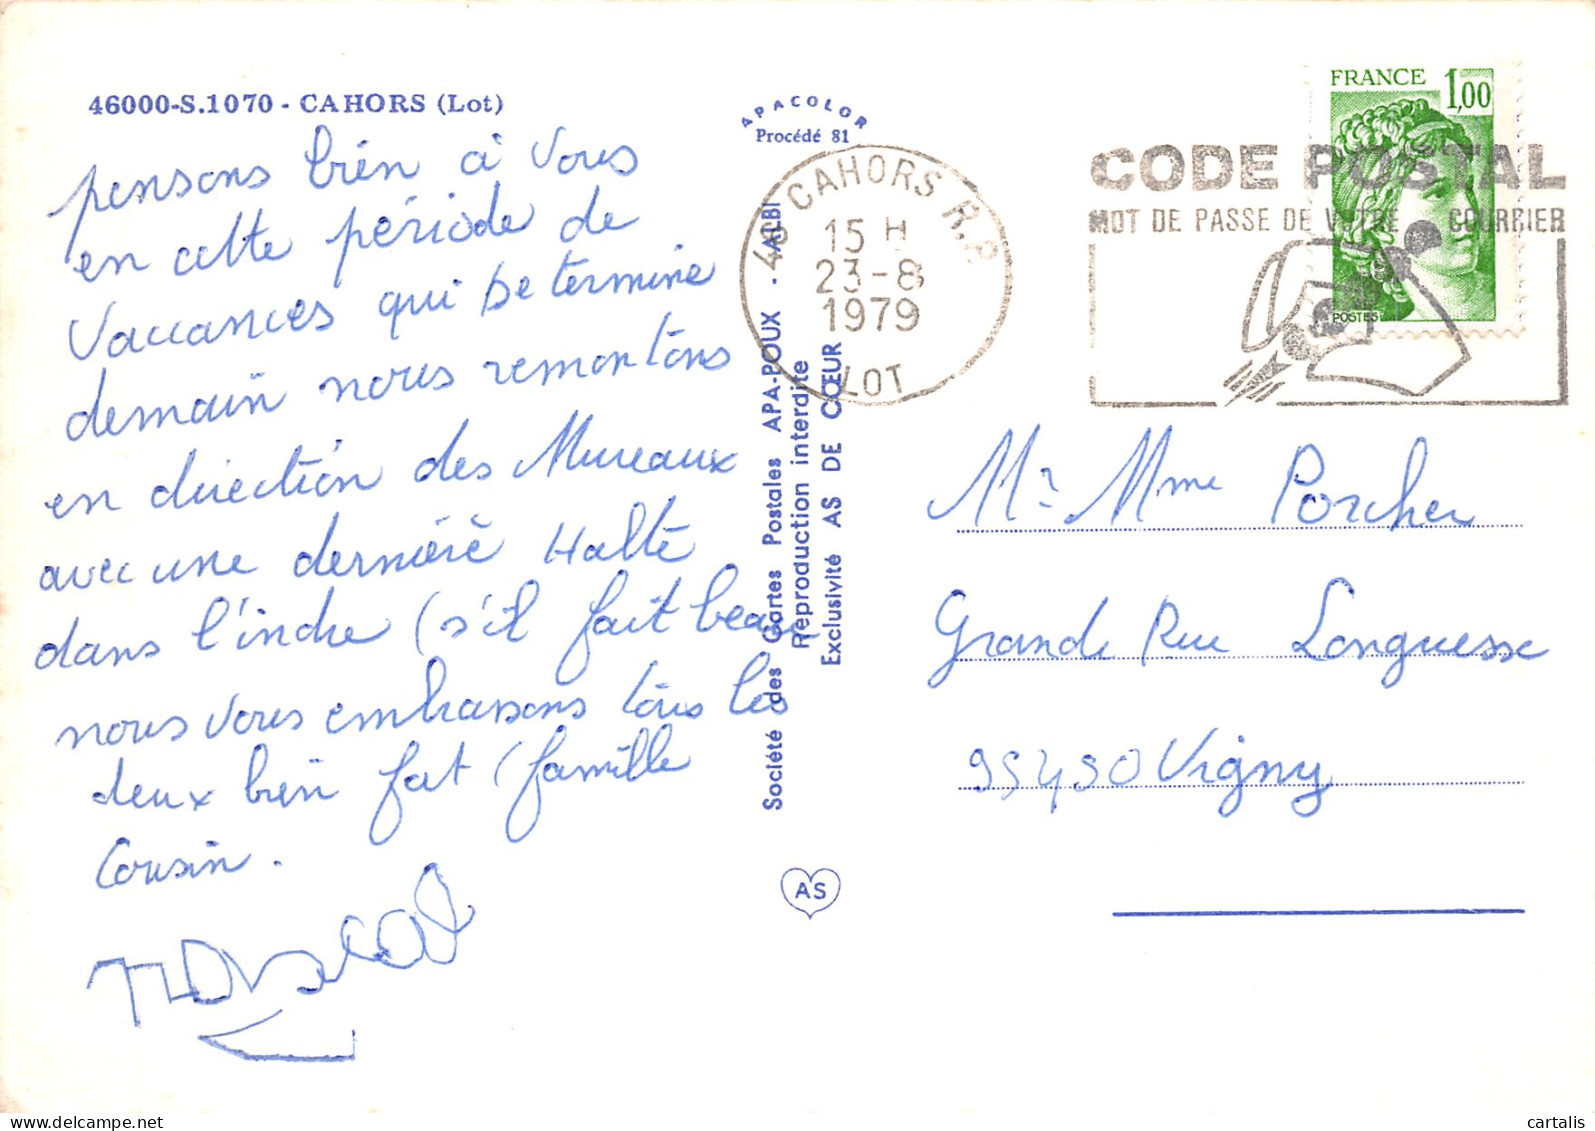 46000-S.1070 - CAHORS (Lot)
pensons bien à vous
en cette période de
vaccances qui se termine
demain nous remontons
en direction des Mureaux
avec une dernière Halte
dans l'indre (s'il fait beau
nous vous embrassons tous les
deux bien fort (famille
Cousin.
APACOLOR
Procédé 81
Société des Cartes Postales APA-POUX - ALBI
Reproduction interdite
Exclusivité AS DE CŒUR
AS
46 CAHORS R.P.
15 H
23-8
1979
LOT
CODE POSTAL
MOT DE PASSE DE VOTRE COURRIER
FRANCE 1,00
POSTES
Mr Mme Porcher
Grande Rue Longuesse
95450 Vigny
delcampe.net
cartalis